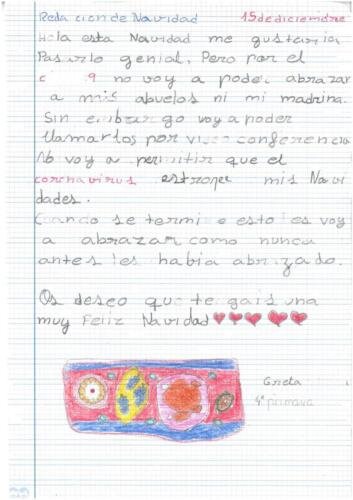 Redacción de Navidad 15 de diciembre
Hola esta Navidad me gustaria
Pasarlo genial, Pero por el
no voy a poder abrazar
a mis abuelos ni mi madrina.
Sin embargo voy a poder
llamarlos por videoconferencia
No voy a permitir que el
coronavirus estropee mis Navi
dades.
Cuando se termine esto les voy
a abrazar como nunca
antes les habia abrazado.
Os deseo que tengais una
muy Feliz Navidad
Greta
4º primaria